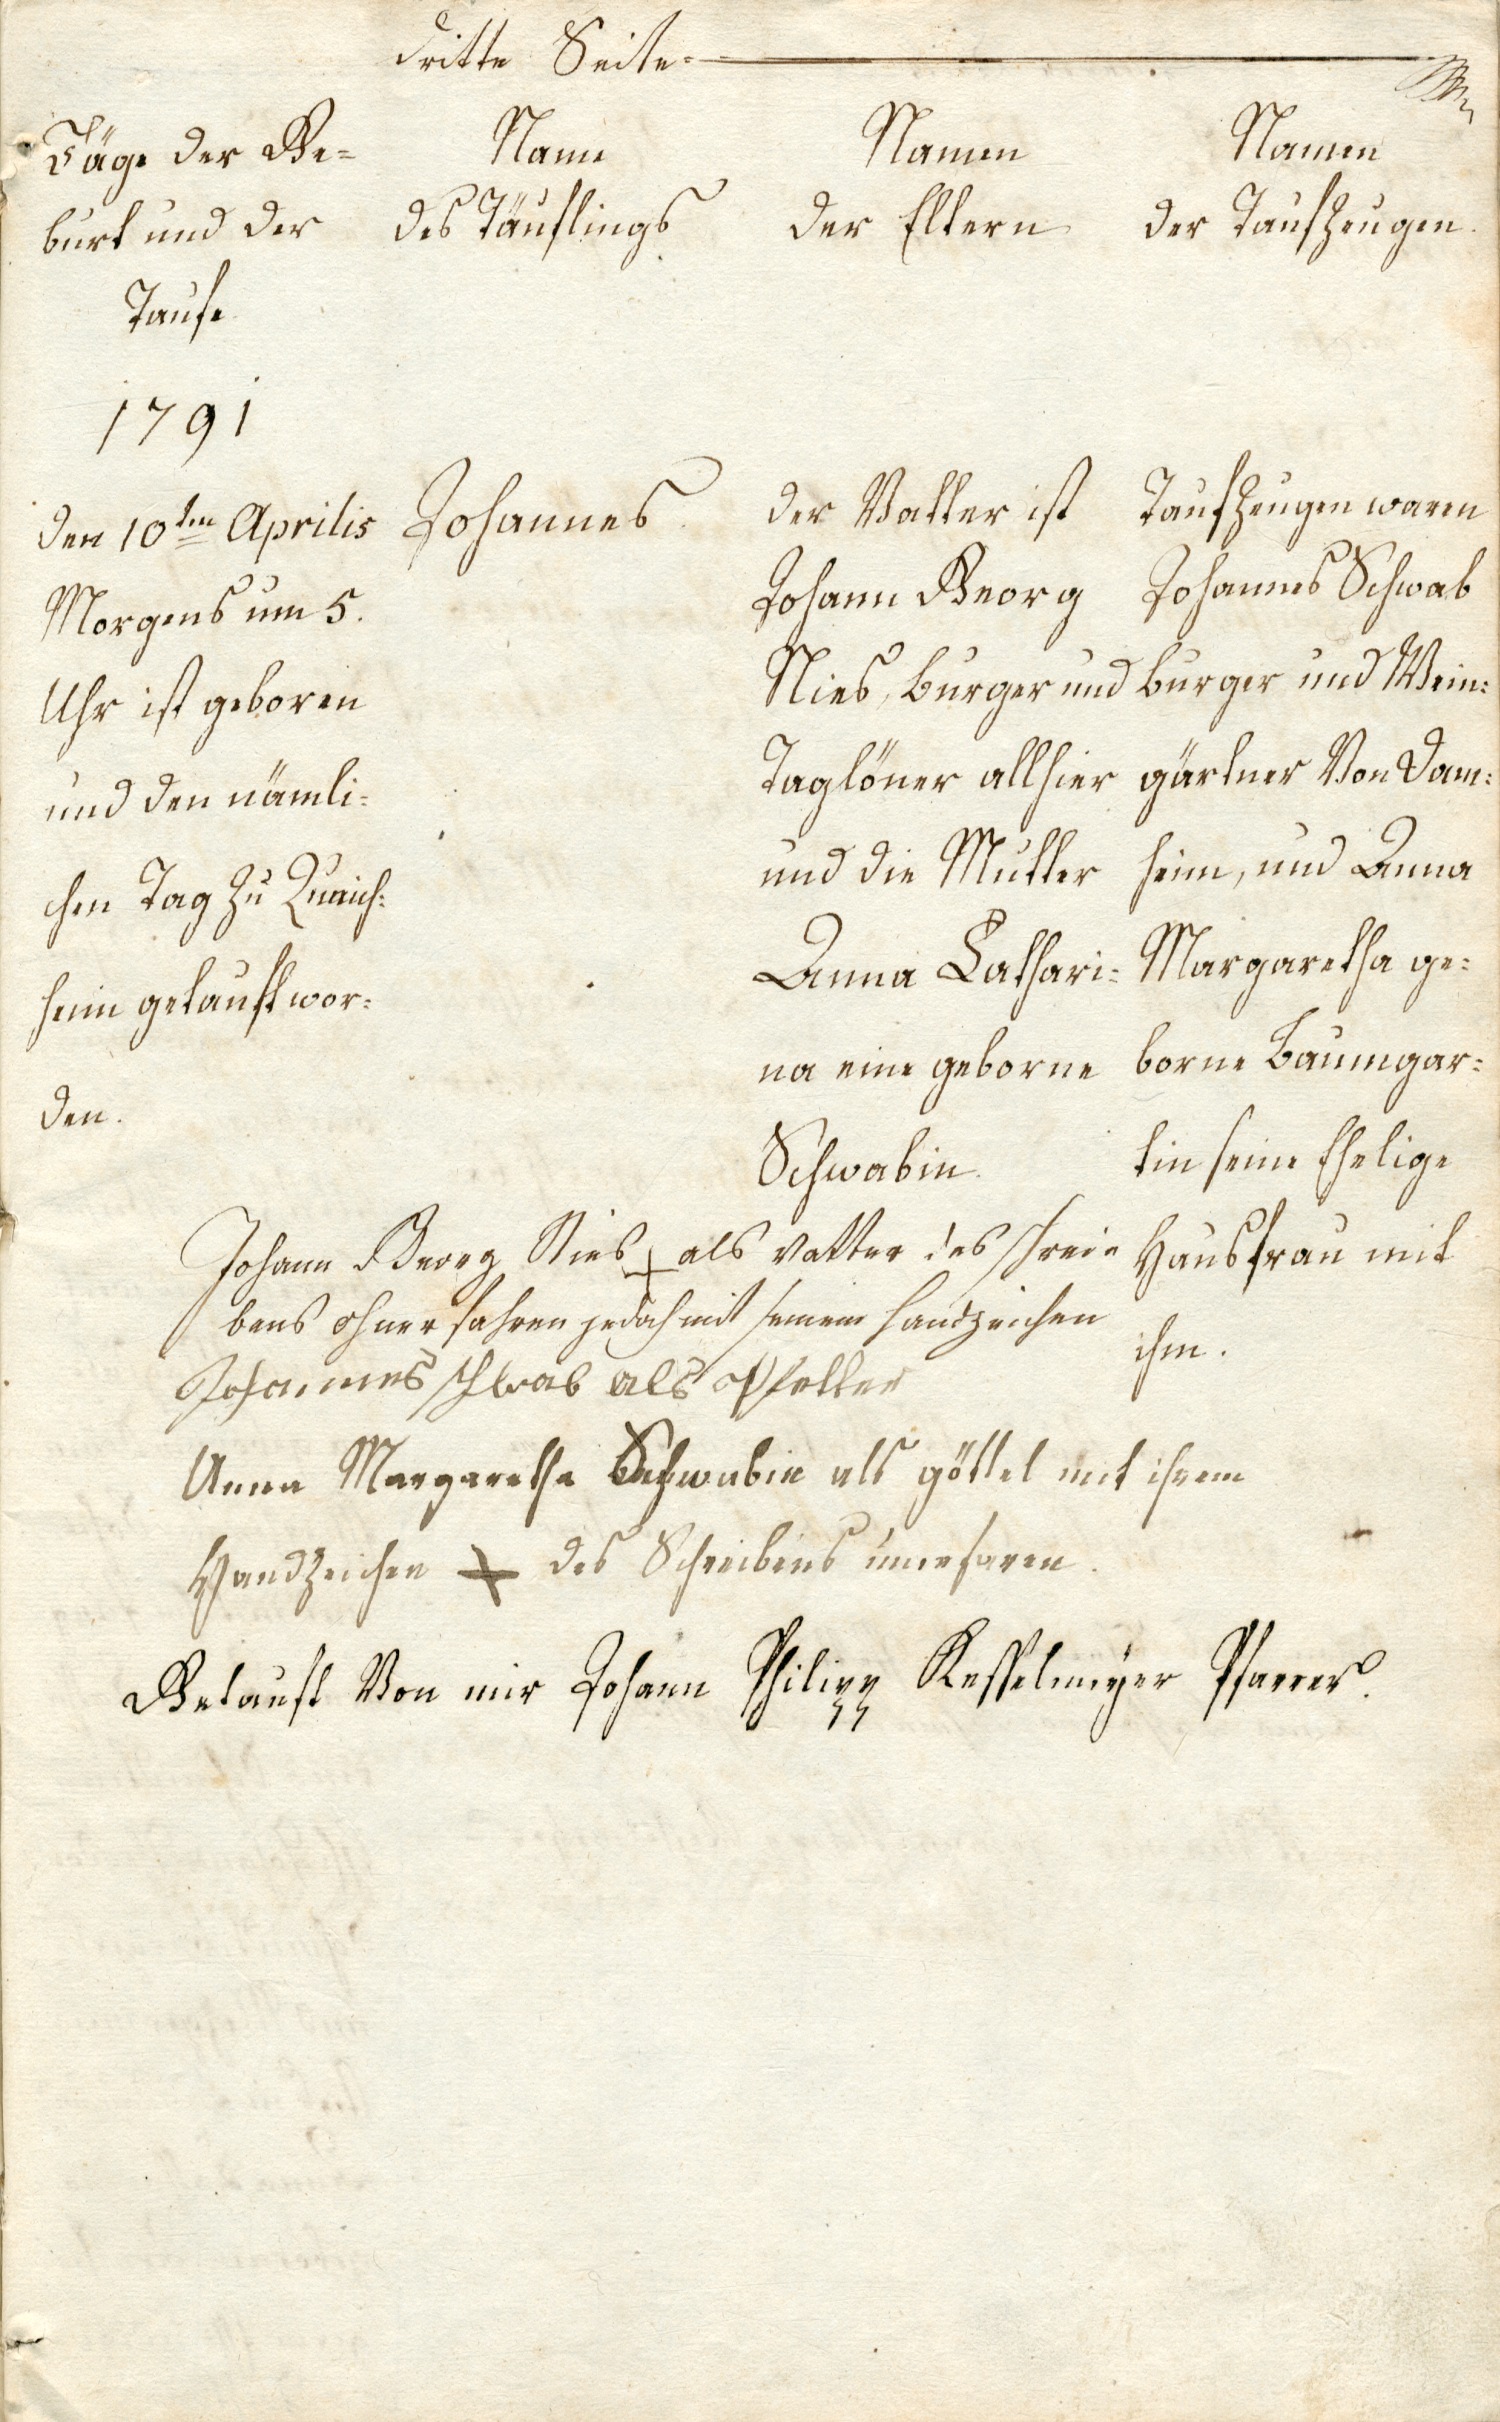 dritte Seite.
Täge der Ge=
burt und der
Taufe
Name
des Täuflings
Namen
der Eltern
Namen
der Taufzeugen.
1791
den 10ten Aprilis
Morgens um 5.
Uhr ist geboren
und den nämli=
chen Tag zu Queich=
heim getauft wor=
den.
Johannes.
der Vatter ist
Johann Georg
Nies, burger und
Taglöner allhier
und die Mutter
Anna Cathari=
na eine geborne
Schwabin.
Taufzeugen waren
Johannes Schwab
burger und Wein=
gärtner Von Dam=
heim, und Anna
Margaretha ge=
borne Baumgar=
tin seine Ehelige
Hausfrau mit
ihm.
Johann Georg Nies + als vatter des schrei
bens ohnerfahren jedoch mit seinem handzeichen
Johannes schwab als Pfetter
Anna Margaretha Schwabin als göttel mit ihrem
Handzeichen + des Schreibens unerfaren.
Getauft Von mir Johann Philipp Kesselmeyer Pfarrer.